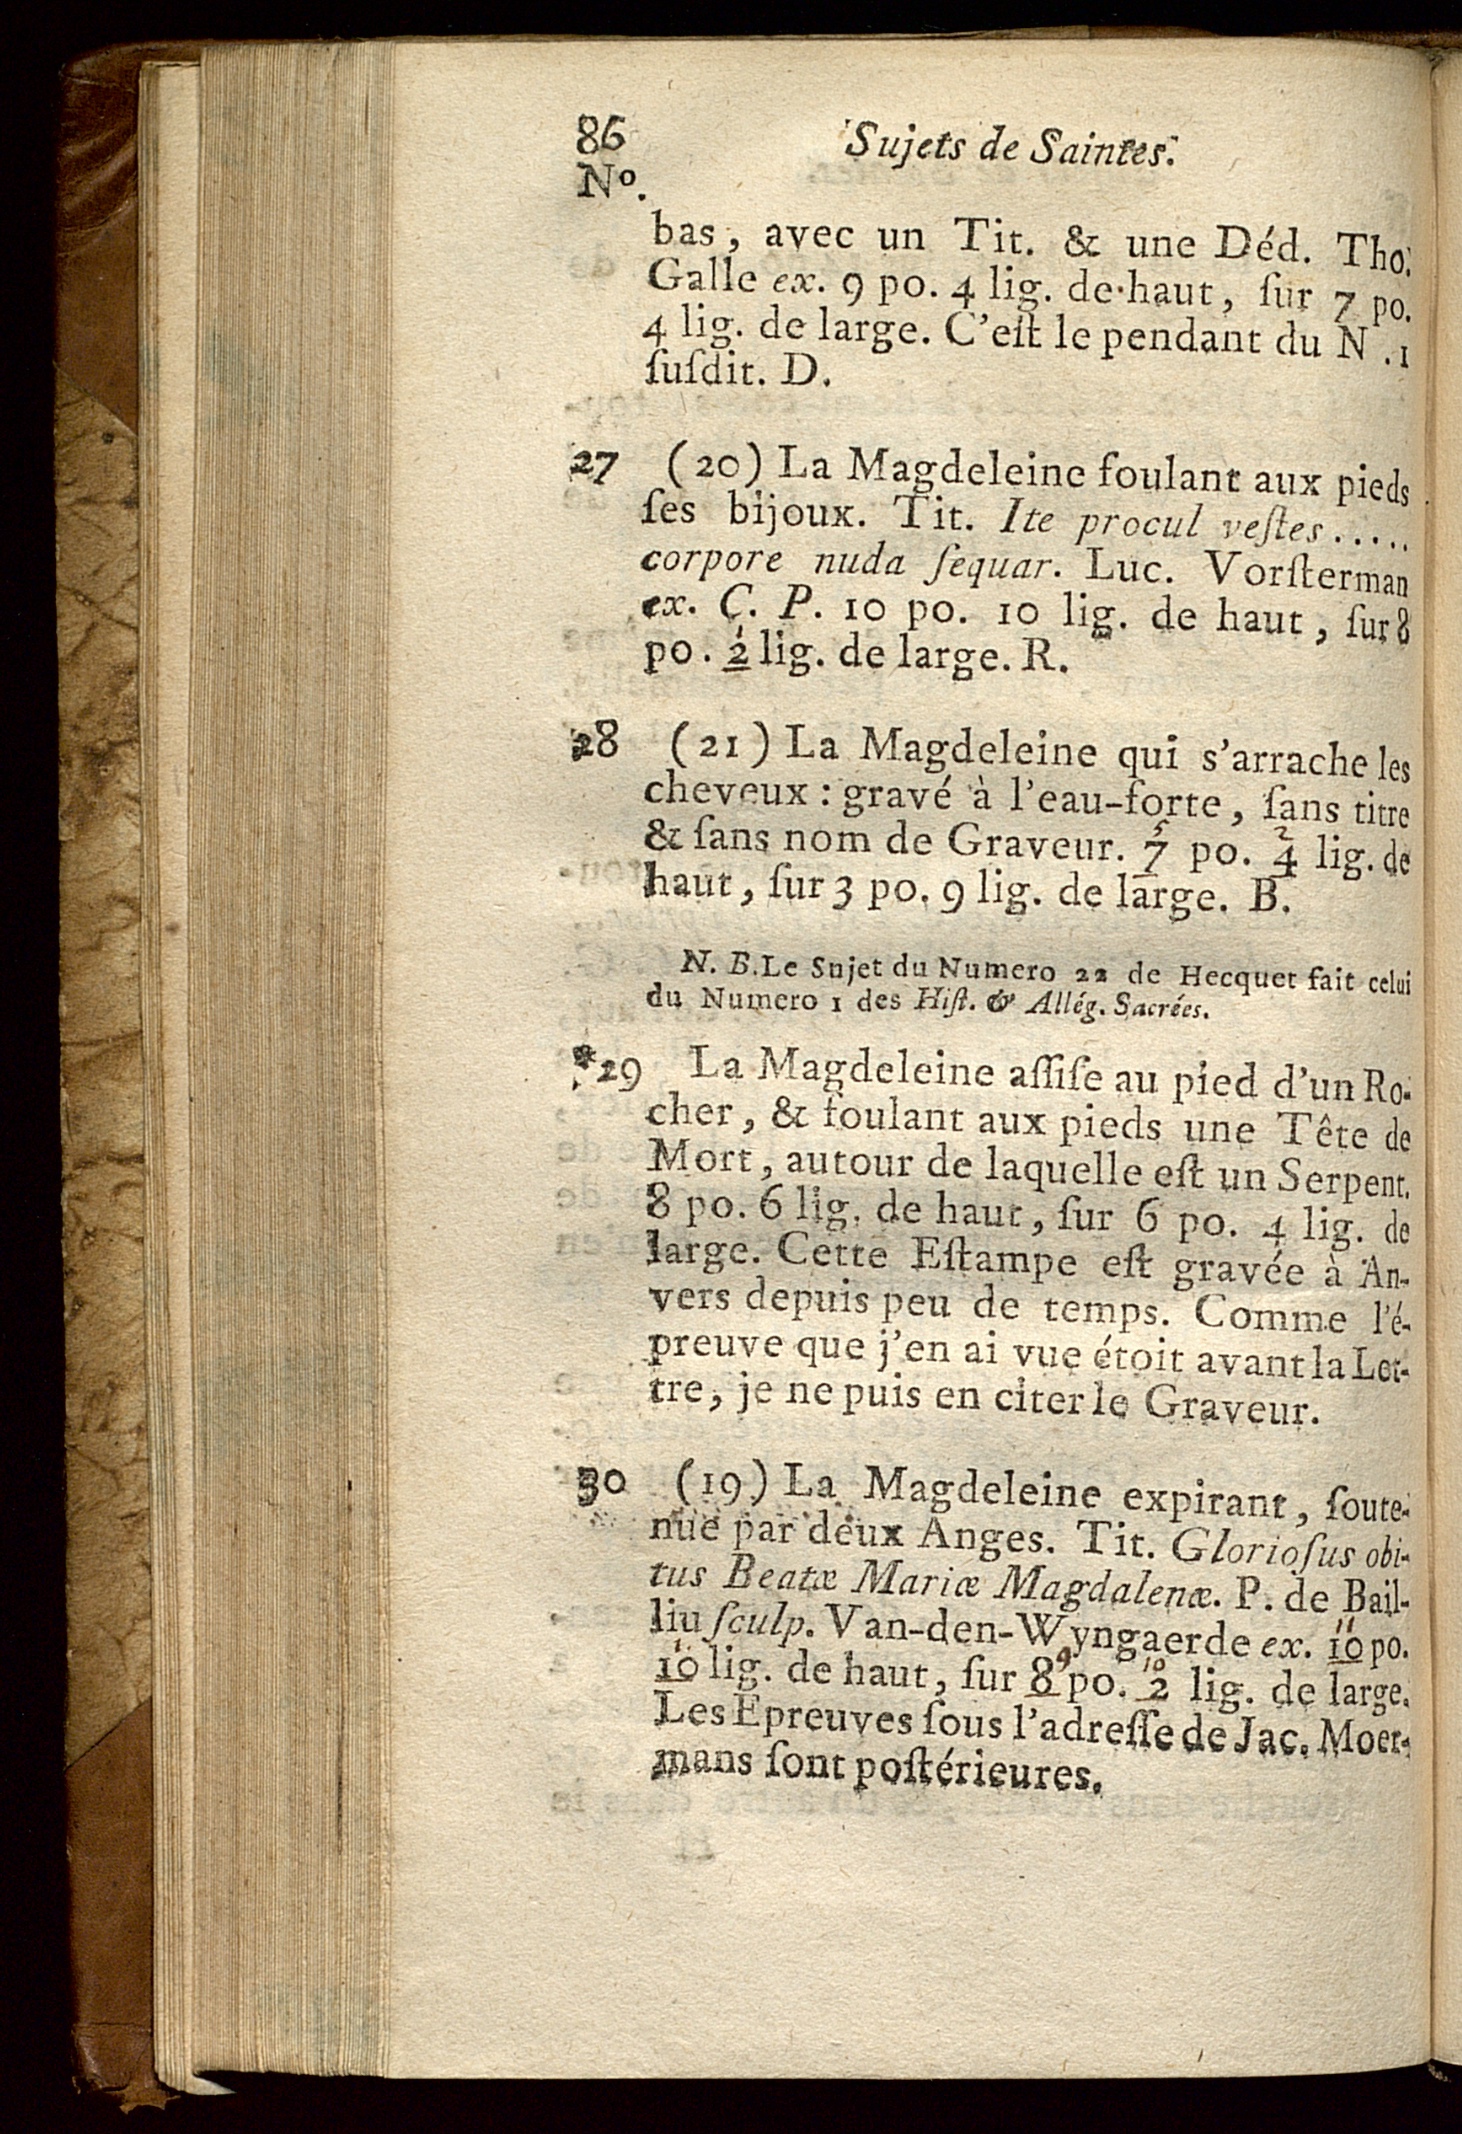 86 Sujets de Saintes.
Nº.
bas, avec un Tit. & une Déd. Tho.
Galle ex. 9 po. 4 lig. de haut, ſur 7 po.
4 lig. de large. C'eſt le pendant du N . 1
ſuſdit. D.
27 (20) La Magdeleine foulant aux pieds
ſes bijoux. Tit. Ite procul veſtes.....
corpore nuda ſequar. Luc. Vorſterman
ex. C. P. 10 po. 10 lig. de haut, ſur 8
po. 2 1 lig. de large. R.
28 (21) La Magdeleine qui s'arrache les
cheveux : gravé à l'eau-forte, ſans titre
& ſans nom de Graveur. 7 5 po. 4 2 lig. de
haut, ſur 3 po. 9 lig. de large. B.
N. B. Le Sujet du Numero 22 de Hecquet fait celui
du Numero 1 des Hiſt. & Allég. Sacrées.
*29 La Magdeleine aſſiſe au pied d'un Ro-
cher, & foulant aux pieds une Tête de
Mort, autour de laquelle eſt un Serpent.
8 po. 6 lig. de haut, ſur 6 po. 4 lig. de
large. Cette Eſtampe eſt gravée à An-
vers depuis peu de temps. Comme l'é-
preuve que j'en ai vue étoit avant la Let-
tre, je ne puis en citer le Graveur.
30 (19) La Magdeleine expirant, ſoute-
nue par deux Anges. Tit. Glorioſus obi-
tus Beatæ Mariæ Magdalenæ. P. de Bail-
liu ſculp. Van-den-Wyngaerde ex. 10 11 po.
10 11 lig. de haut, ſur 8 9 po. 2 10 lig. de large.
Les Epreuves ſous l'adreſſe de Jac. Moer-
mans ſont poſtérieures.